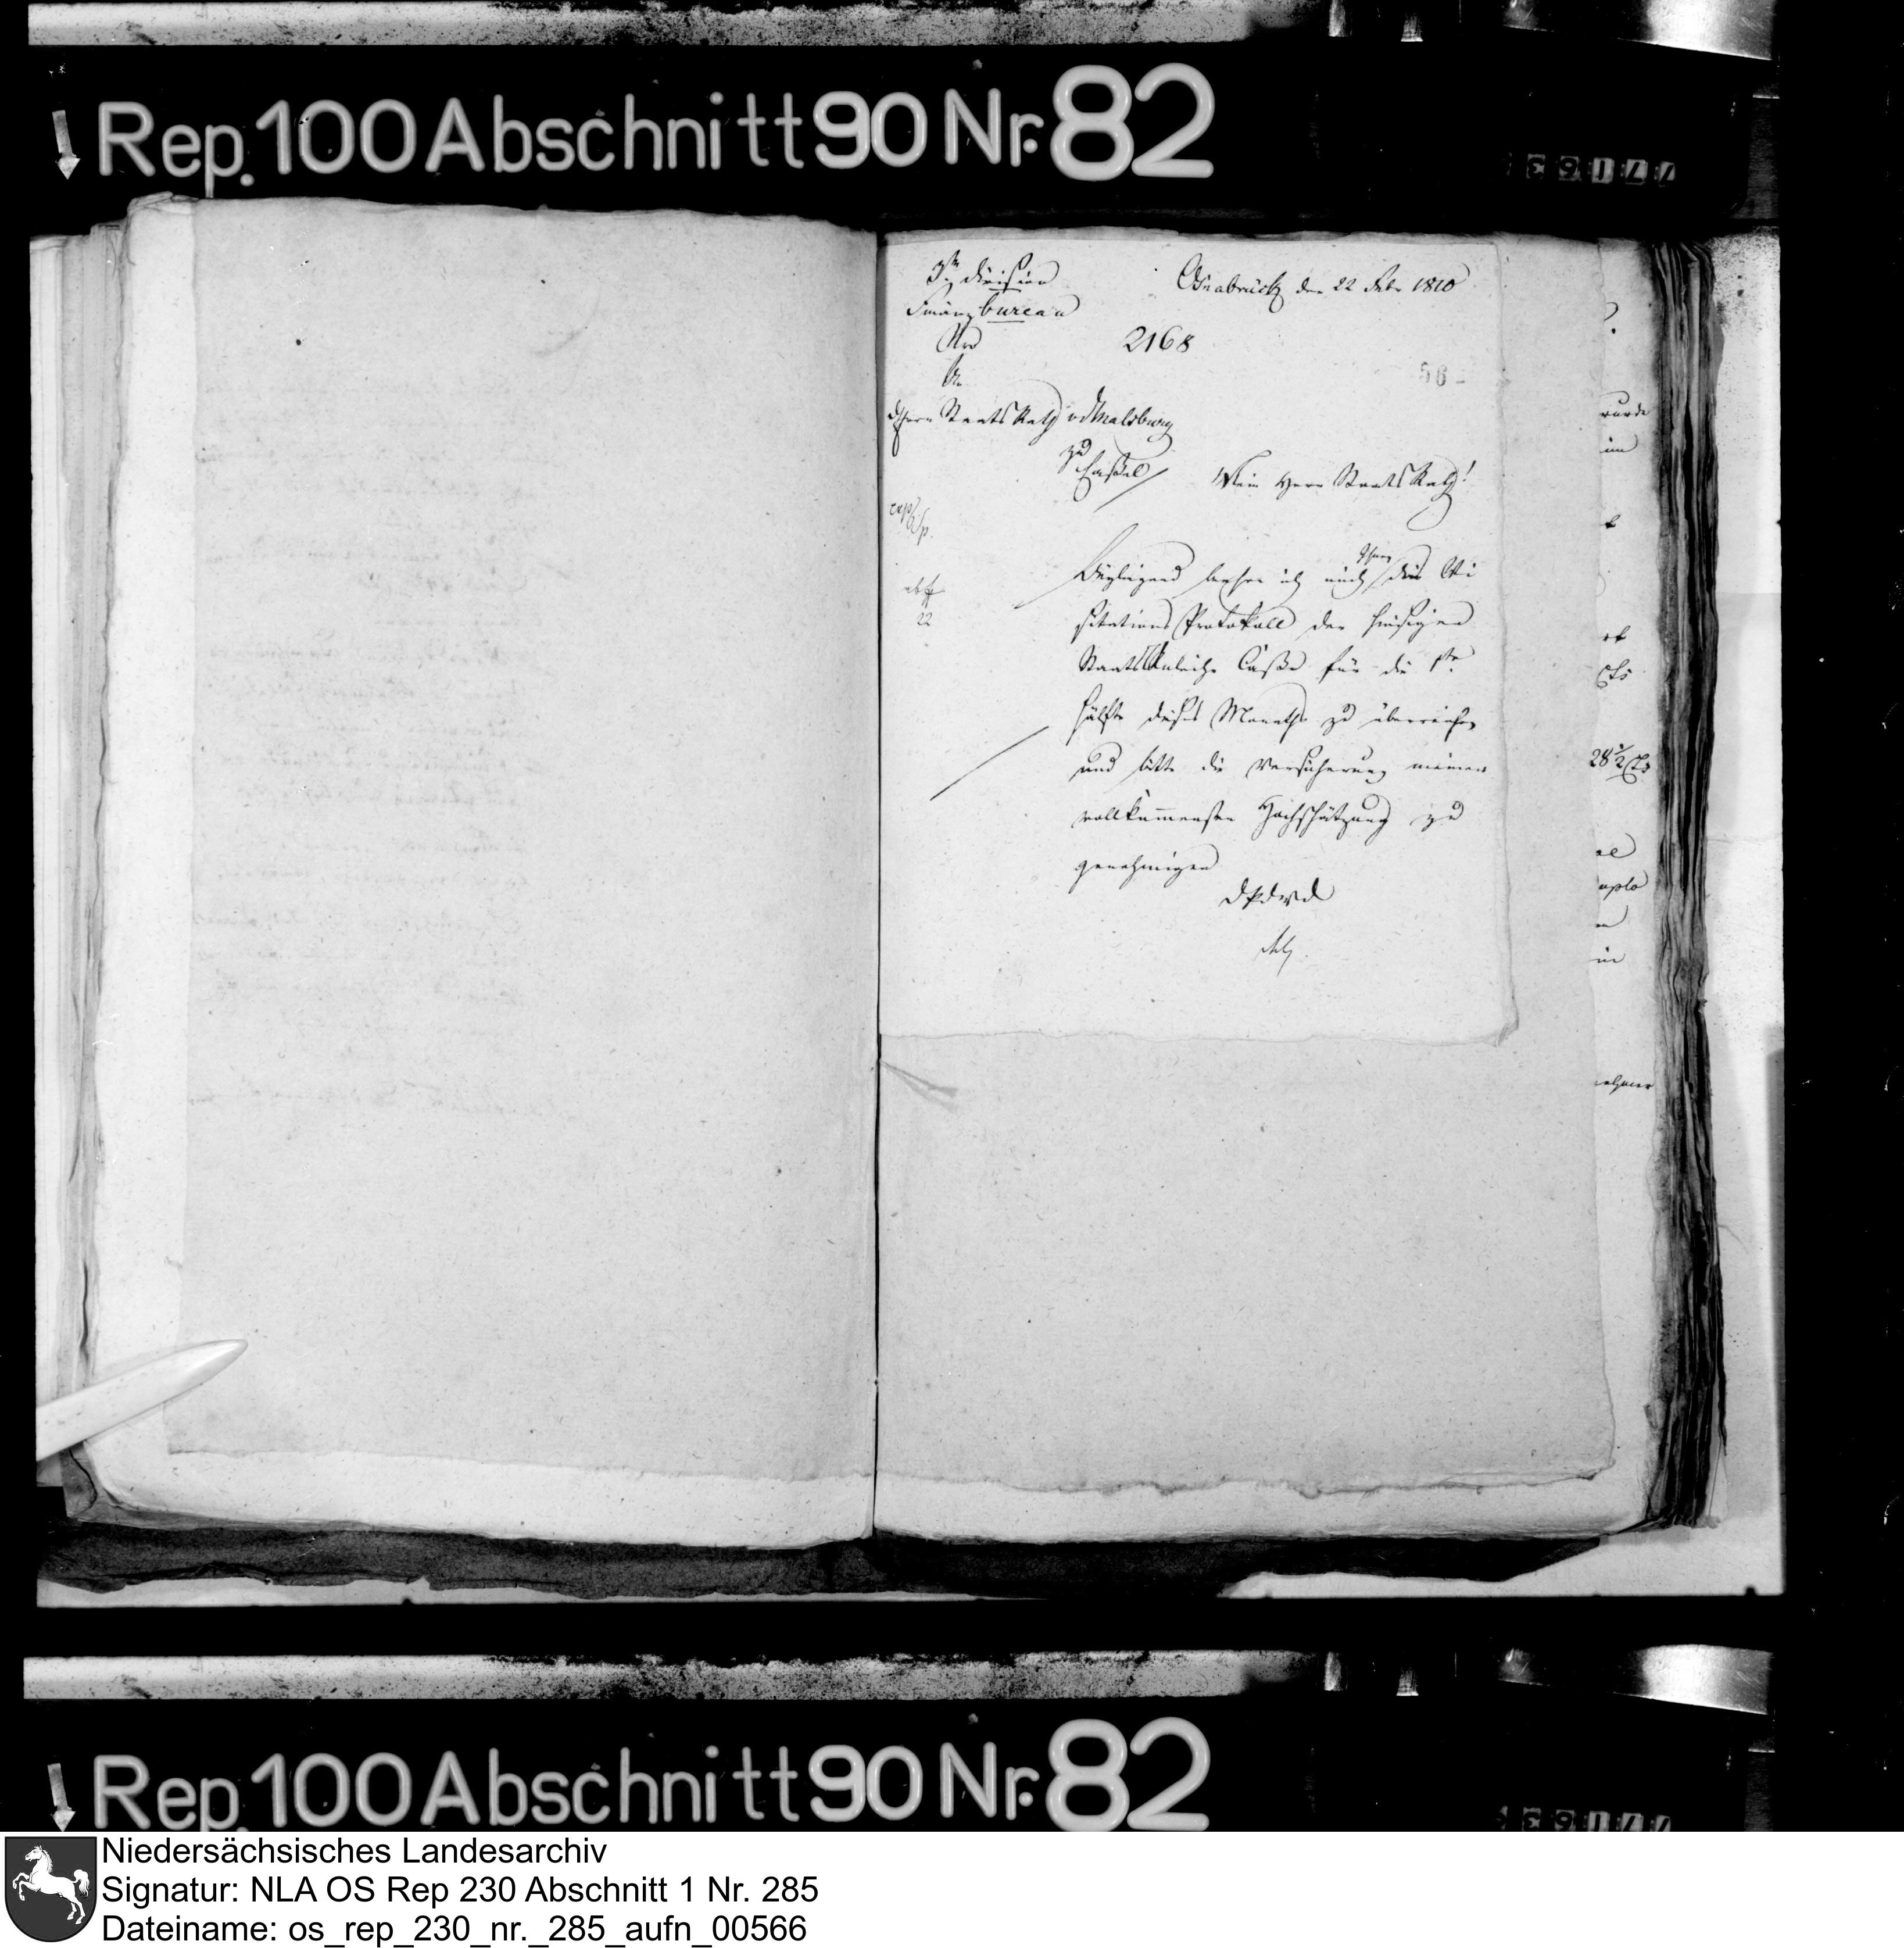 Rep. 100 Abschnitt 90 Nr. 82
3te division
Osnabrück den 22 Febr 1810
Finanzbureau
Nro 2168
An
56
Herrn Staats Rath vdMalsburg
zu
Cassel
Mein Herr Staats Rath!
abg
22
Beyliegend beehre ich mich Ihnen das Vi
sitations Protokoll der hiesigen
Staats Anleihe Casse für die 1te
Hälfte dieses Monaths zu überreichen
und bitte die Versicherung meiner
vollkommensten Hochschätzung zu
genehmigen
DPdWD
wurde
im
28 1/2 Cts
Rep. 100 Abschnitt 90 Nr. 82
Niedersächsisches Landesarchiv
Signatur: NLA OS Rep 230 Abschnitt 1 Nr. 285
Dateiname: os_rep_230_nr._285_aufn_00566